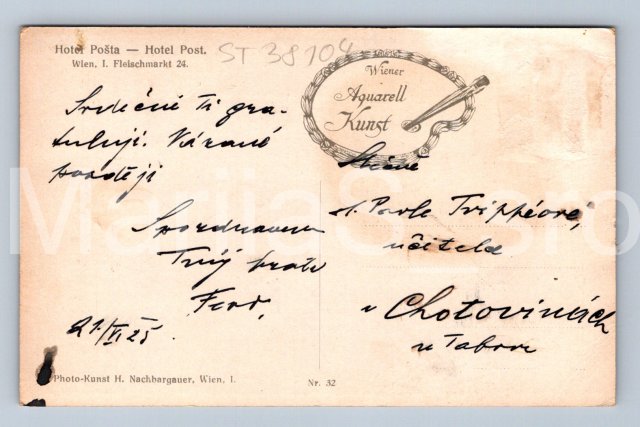 Hotel Pošta — Hotel Post.
Wien, I. Fleischmarkt 24.
ST 38104
Wiener
Aquarell
Kunst
Srdečně Ti gra-
tuluji.
později
S pozdravem
Tvůj bratr
Ferd.
21/VI 25.
Slečně
sl. Pavle
učitelce
v Chotovinách
u Tábora
Photo-Kunst H. Nachbargauer, Wien, I.
Nr. 32